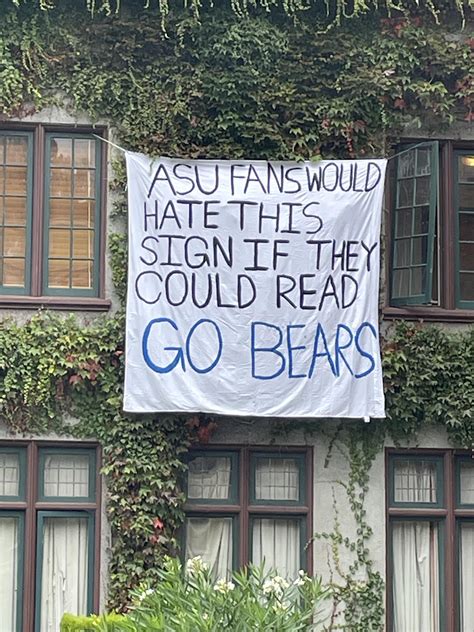 ASU FANS WOULD
HATE THIS
SIGN IF THEY
COULD READ
GO BEARS